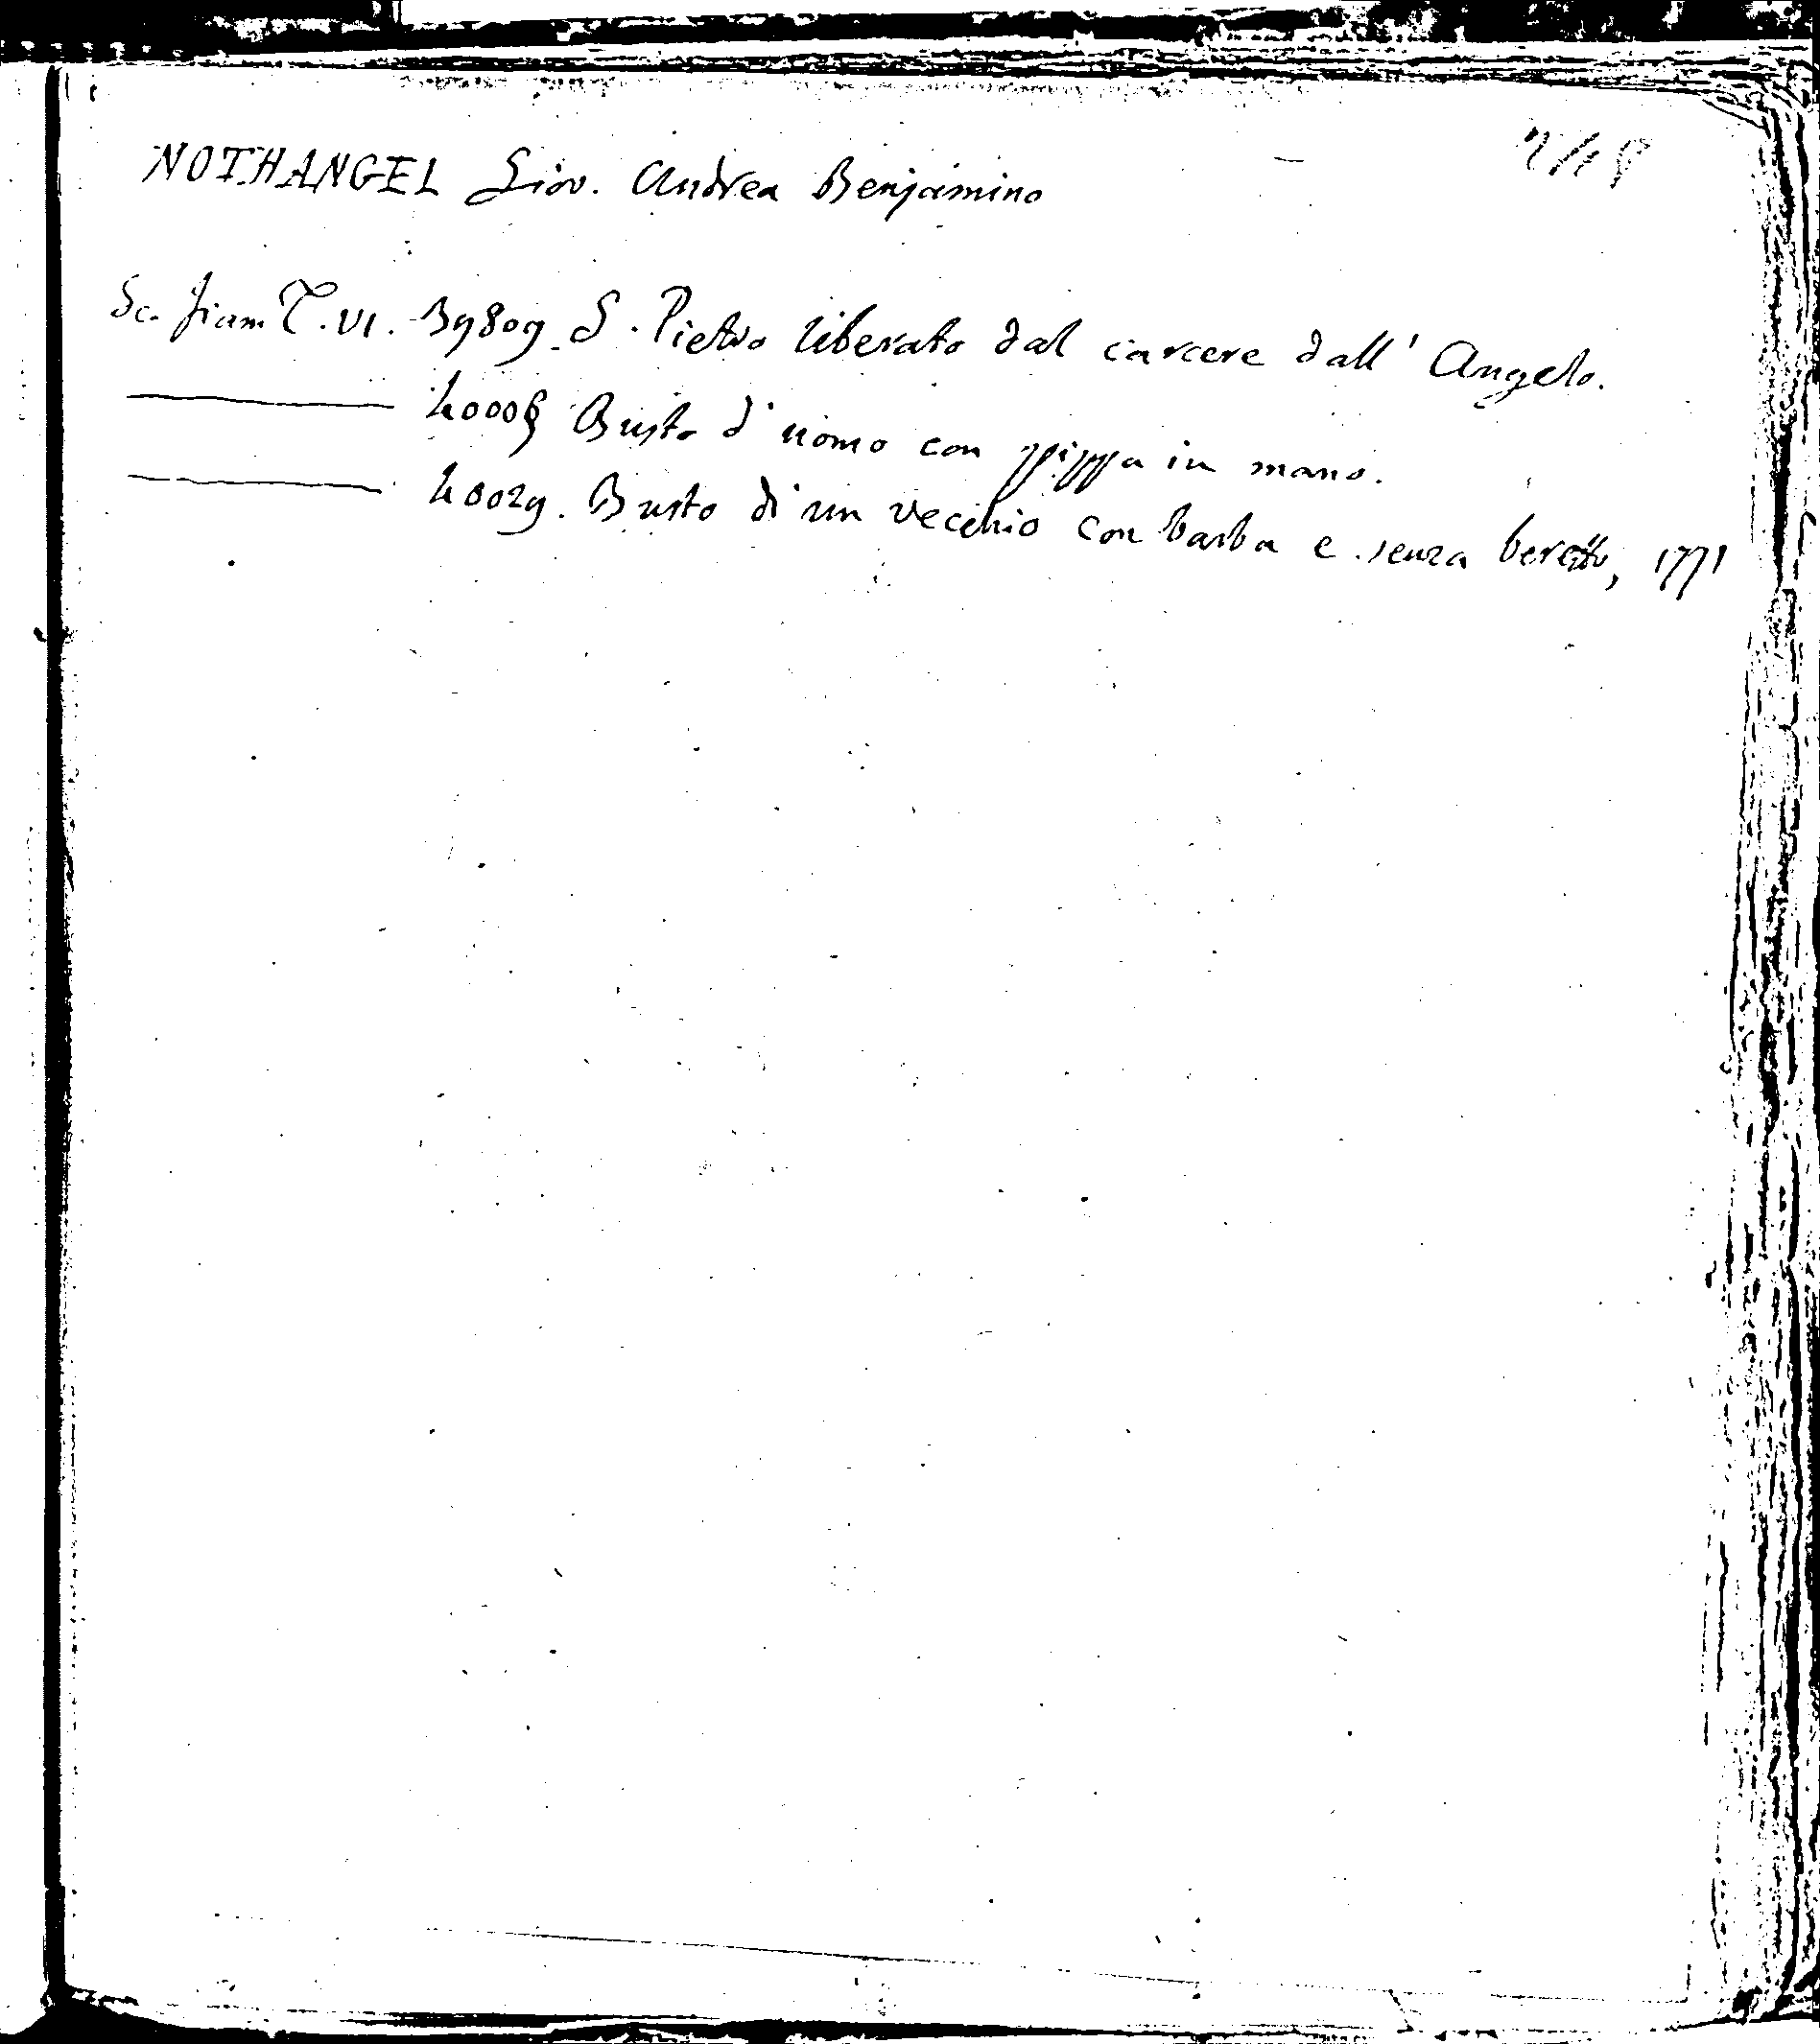 NOTHANGEL Giov. Andrea Benjamino
Sc. fiam. T. VI. 39809. S. Pietro liberato dal carcere dall' Angelo.
40008 Busto d'uomo con pippa in mano.
40029. Busto di un vecchio con barba e senza beretto, 1771